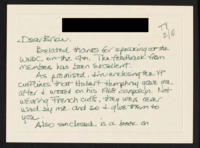 TY
2/6
Dear Brian,
Belated thanks for speaking at the
WWDC on the 9th. The feedback from
members has been excellent.
As promised, I'm enclosing the VP
cufflinks that Hubert Humphrey gave me
after I worked on his 1968 campaign. Not
wearing French cuffs, they were never
used by me and so I give them to
you.
Also enclosed is a book on